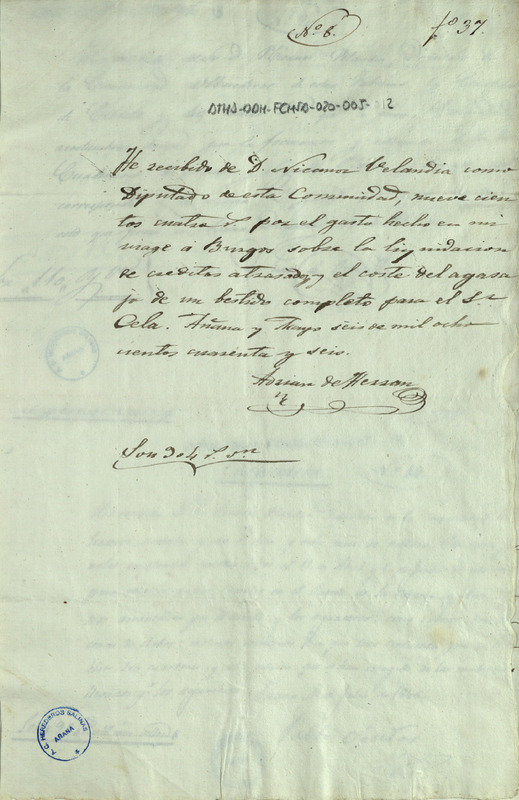 Nº 6.
fº 37.
DTHJ-DDH-FCHSD-020-005-012
He recibido de D. Nicanor Velandia como
Diputado de esta Comunidad, nueve cien
tos cuatro r. por el gasto hecho en mi
viage á Burgos sobre la liquidacion
de creditos atrasados, y el coste del agasa
jo de un bestido completo para el Sr
Cela. Añana y Mayo seis de mil ocho
cientos cuarenta y seis.
Adrian de Herran
Son 904 r. vn
A. C. HEREDEROS SALINAS
AÑANA